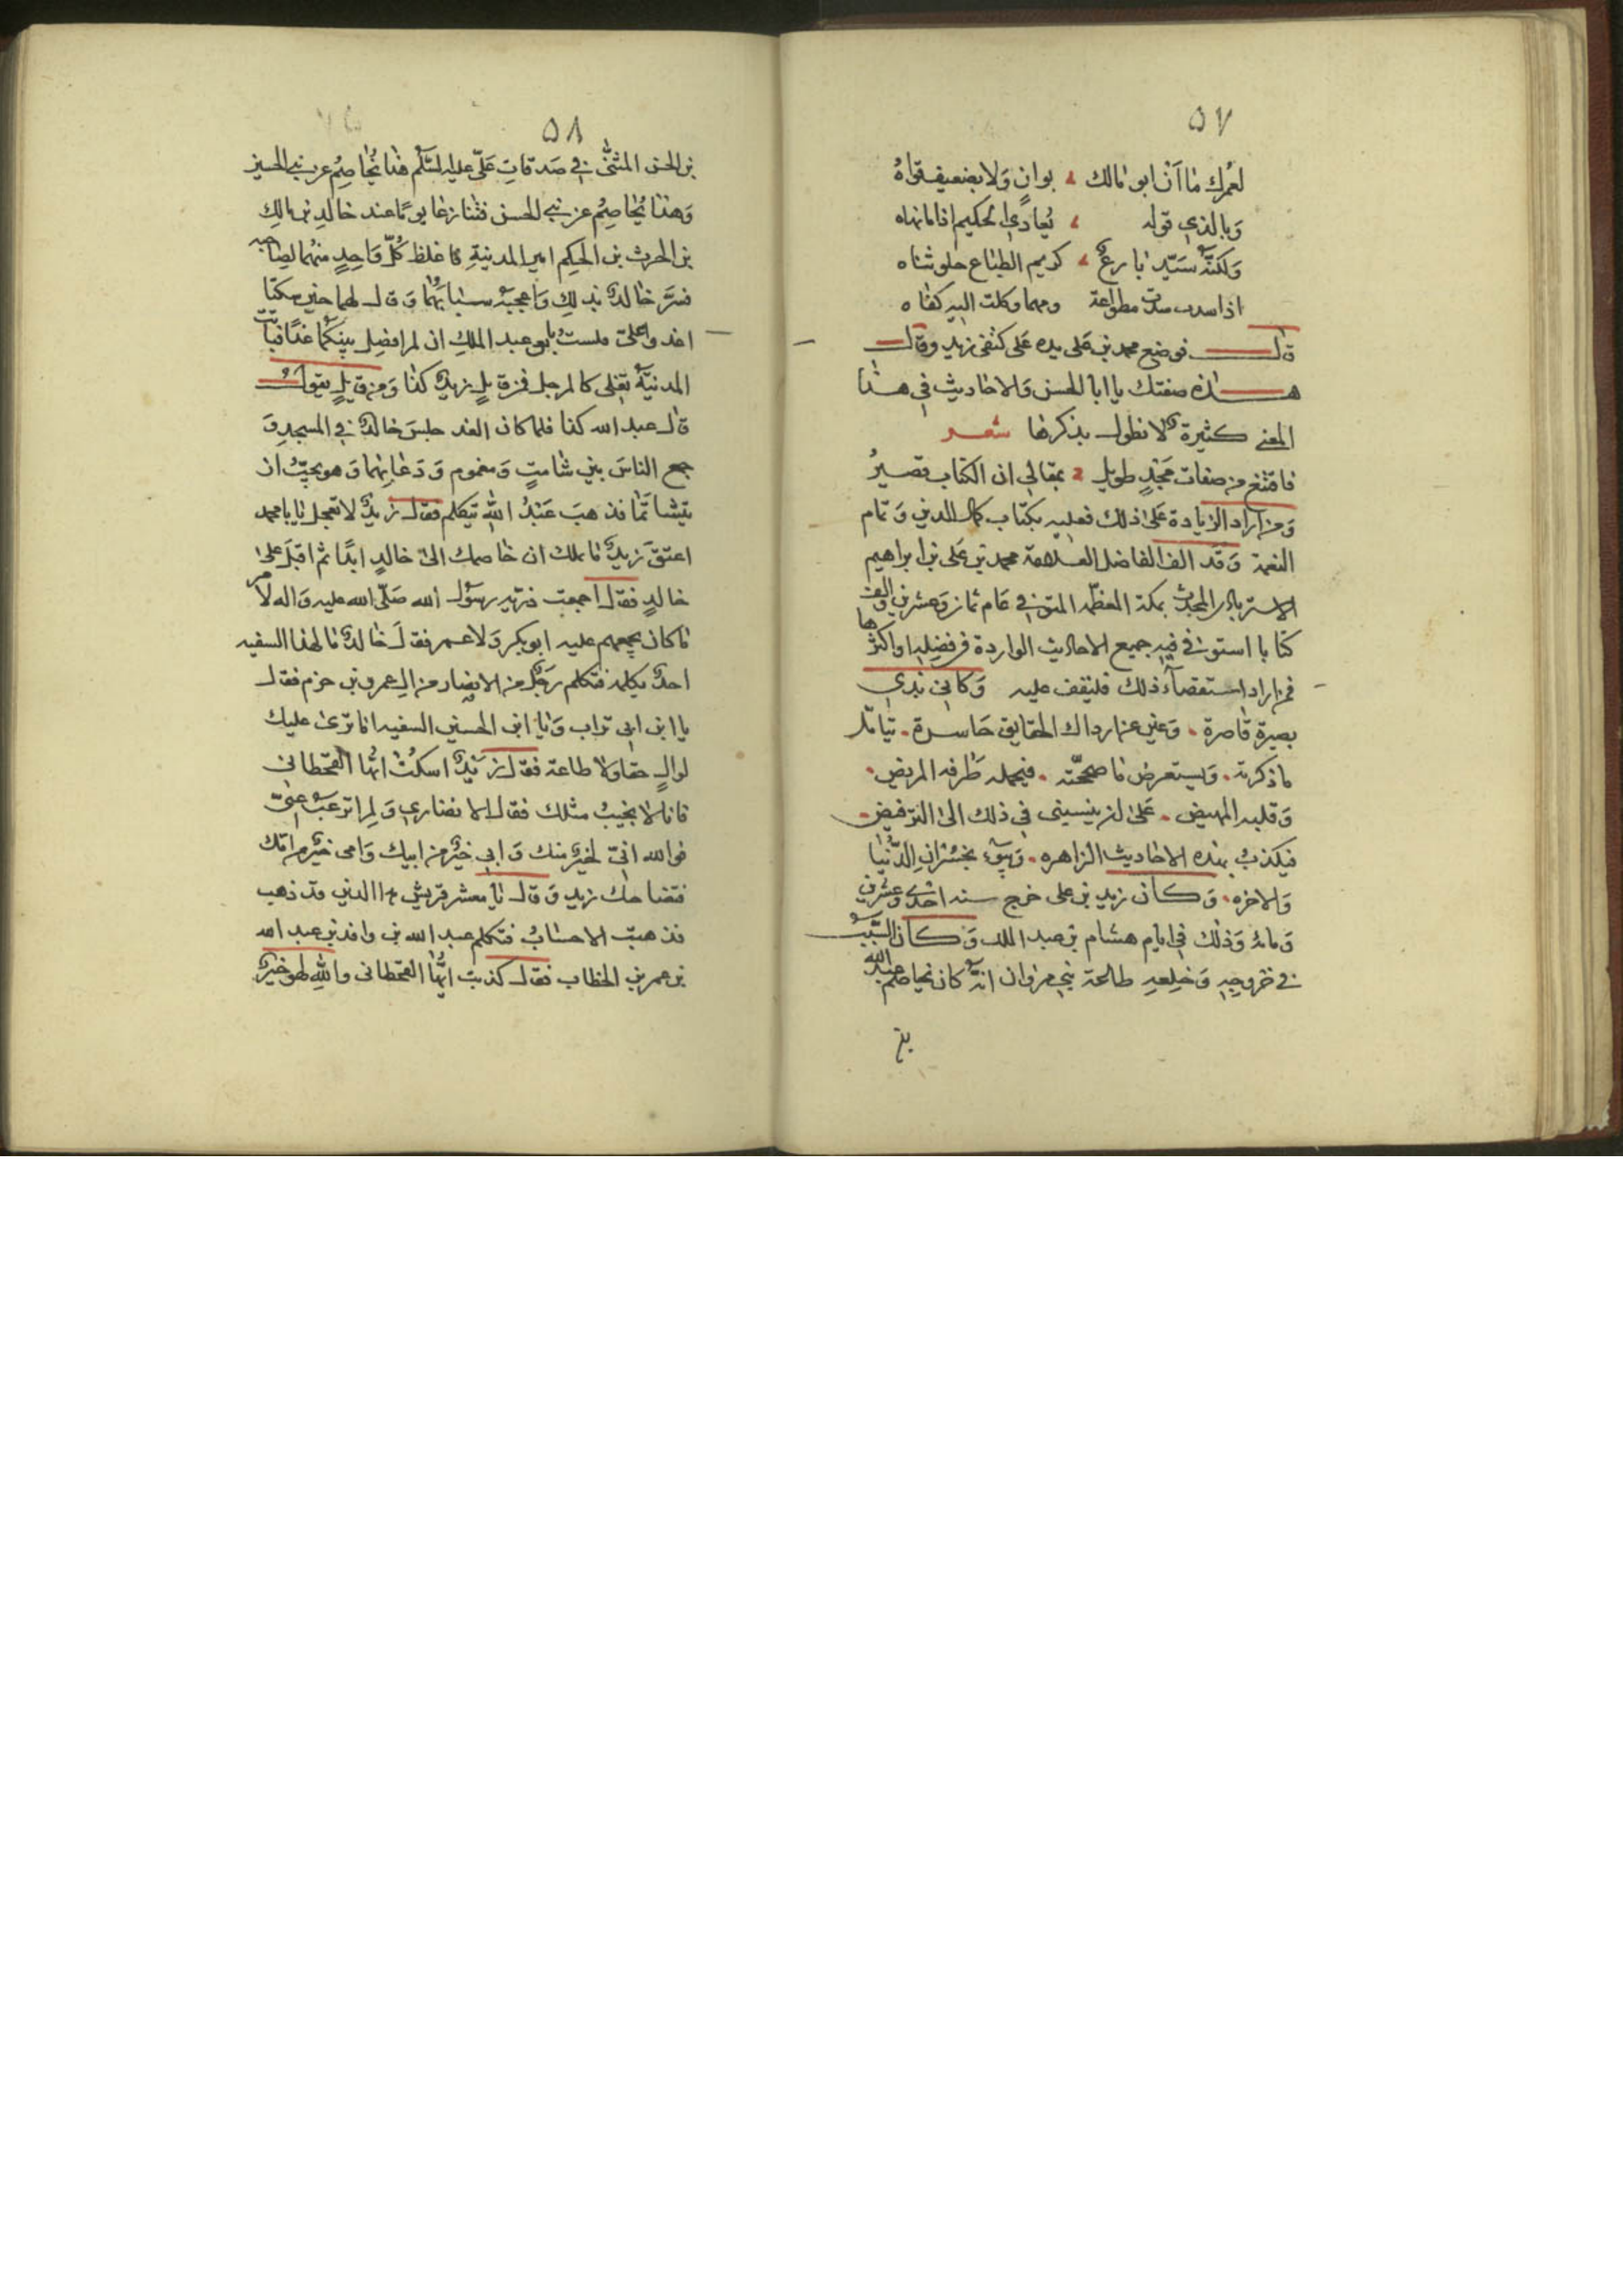 ٥٧
لعمرك ما ان ابو مالك بوانٍ ولا بضعيف قواه
وبالذي قوله يعادي الحكيم اذا ما نهاه
ولكنه سيد بارع كريم الطباع حلو ثناه
اذا سدت مطواعة ومهما وكلت اليه كفاه
قال فوضع محمد بن علي يده على كتفي زيد وقال
هذه صفتك يا ابا الحسن والاحاديث في هذا
المعنى كثيرة لا نطول بذكرها شعر
فاقتنع من صفات مجدٍ طويل بمقالي ان الكتاب قصير
ومن اراد الزيادة على ذلك فعليه بكتاب كمال الدين وتمام
النعمة وقد الف الفاضل العلامة محمد بن علي بن ابراهيم
الاسترباذي المحدث بمكة المعظمه المتوفي في عام ثمان وعشرين والف
كتابا استوفى فيه جميع الاحاديث الواردة في فضله او اكثرها
فمن اراد استقصاء ذلك فليقف عليه وكاني بذي
بصيرة قاصرة وعين عن ادراك الحقايق حاسرة يتامل
ما ذكرته ويستعرض ما صححته فيحمله طرفه المريض
وقلبه المهيض على ان ينسبني في ذلك الى الترفيض
فيكذب بهذه الاحاديث الزاهره ويبوء بخسران الدنيا
والاخره وكان زيد بن علي خرج سنه احدى وعشرين
ومائة وذلك في ايام هشام بن عبد الملك وكان السبب
في خروجه وخلعه طاعة بني مروان انه كان يخاصم عبد الله
بن
٥٨
بن الحسن المثنى في صدقات علي عليه السلم هذا يخاصم عن بني الحسين
وهذا يخاصم عن بني الحسن فتنازعا يوما عند خالد بن مالك
بن الحرث بن الحكم امير المدينة فاغلظ كل واحد منهما لصاحبه
فسر خالد بذلك واعجبه سبابهما وقال لهما حين سكتا
اغدوا علي فلست بابو عبد الملك ان لم افصل بينكما غدا فباتت
المدينة تغلي كالمرجل فمن قايل زيد كذا ومن قايل يقول
قال عبد الله كذا فلما كان الغد جلس خالد في المسجد و
جمع الناس بين شامت ومغموم ودعا بهما وهو يحب ان
يتشاتما فذهب عبد الله يتكلم فقال زيد لا تعجل يا با محمد
اعتق زيد ما ملك ان خاصمك الى خالد ابدا ثم اقبل على
خالد فقال اجمعت ذرية رسول الله صلى الله عليه واله لامر
ما كان يجمعهم عليه ابو بكر ولا عمر فقال خالد ما لهذا السفيه
احد يكلمه فتكلم رجل من الانصار من ال عمرو بن حزم فقال
يا ابن ابي تراب ويا ابن الحسين السفيه اما ترى عليك
لوالٍ حقا ولا طاعة فقال زيد اسكت ايها القحطاني
فانا لا نجيب مثلك فقال الانصاري ولم ترغب عني
فوالله اني لخير منك وابي خير من ابيك وامي خير من امك
فتضاحك زيد وقال يا معشر قريش هذا الدين قد ذهب
فذهبت الاحساب فتكلم عبد الله بن واقد بن عبد الله
بن عمر بن الخطاب فقال كذبت ايها القحطاني والله لهو خير